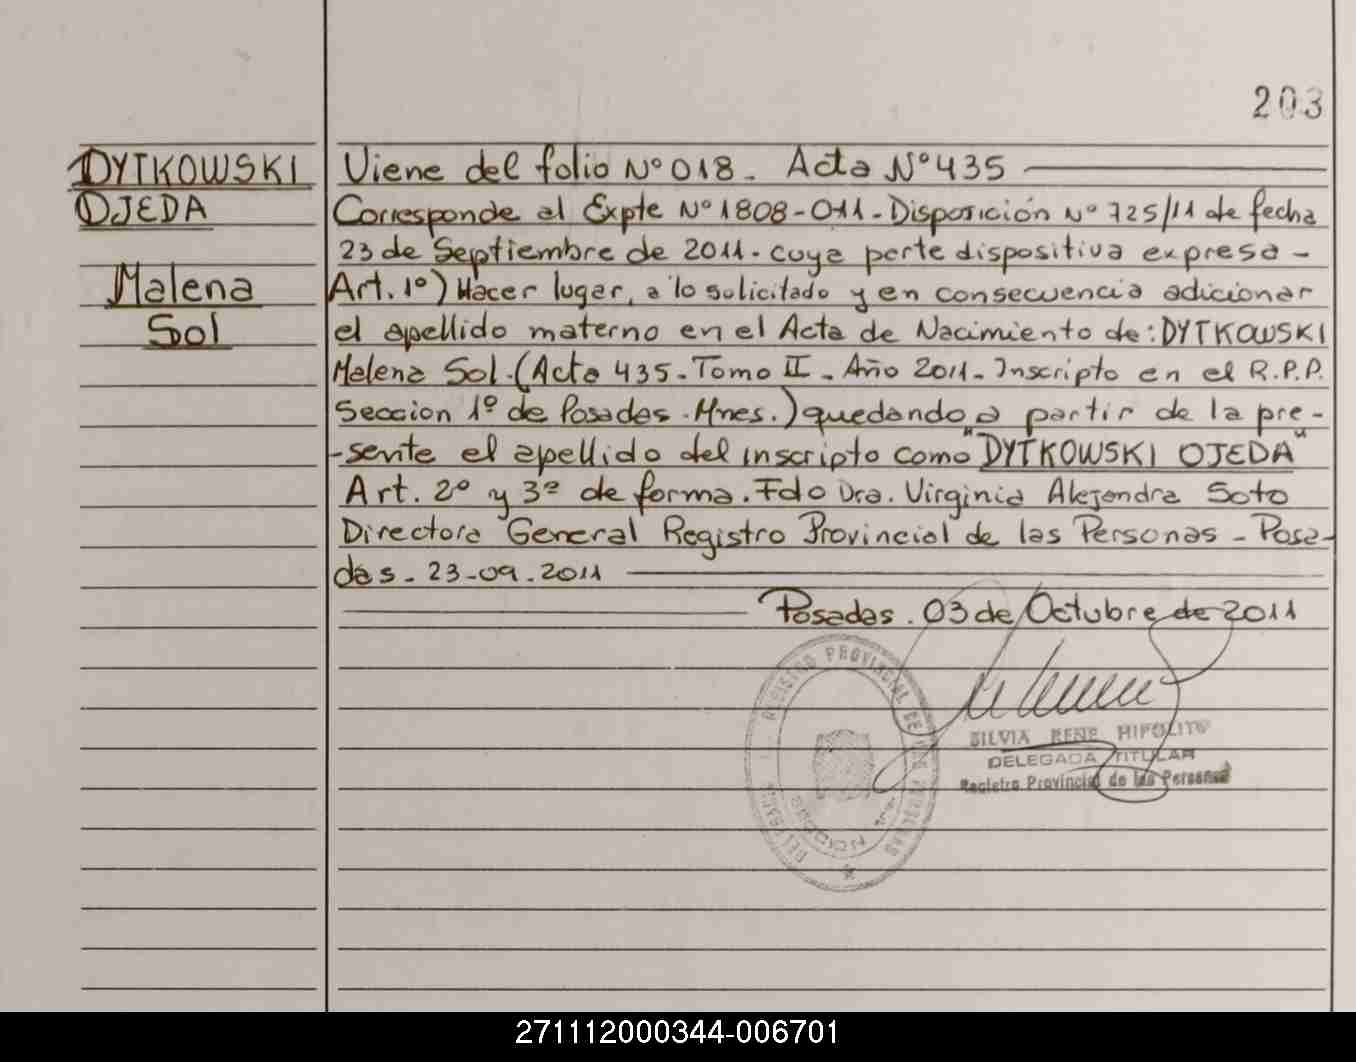 203
DYTKOWSKI
OJEDA
Malena
Sol
Viene del folio Nº 018. Acta Nº 435
Corresponde al Expte Nº 1808-011-Disposición Nº 725/11 de fecha
23 de Septiembre de 2011. cuya parte dispositiva expresa-
Art. 1º) Hacer lugar, a lo solicitado y en consecuencia adicionar
el apellido materno en el Acta de Nacimiento de: DYTKOWSKI
Malena Sol. (Acta 435. Tomo II. Año 2011. Inscripto en el R.P.P.
Seccion 1º de Posadas. Mnes.) quedando a partir de la pre-
-sente el apellido del inscripto como "DYTKOWSKI OJEDA"
Art. 2º y 3º de forma. Fdo Dra. Virginia Alejandra Soto
Directora General Registro Provincial de las Personas - Posa-
das. 23-09.2011
Posadas. 03 de Octubre de 2011
REGISTRO PROVINCIAL DE LAS PERSONAS
SILVIA RENE HIPOLITO
DELEGADA TITULAR
Registro Provincial de las Personas
271112000344-006701